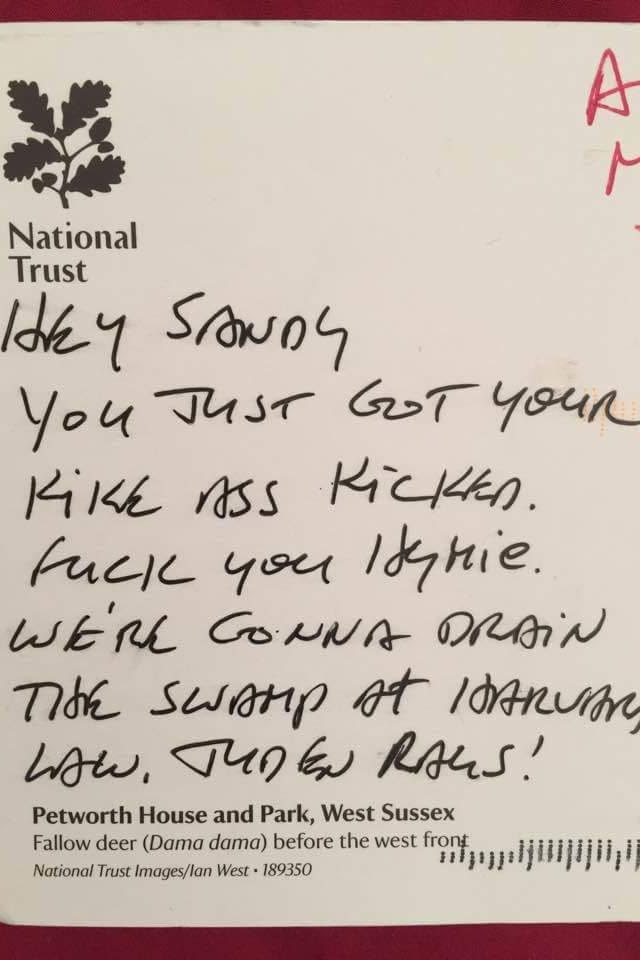 A
M
National
Trust
HEY SANDY
YOU JUST GOT YOUR
KIKE ASS KICKED.
FUCK YOU HYMIE.
WE'RE GONNA DRAIN
THE SWAMP AT HARVARD
LAW. JUDEN RAUS!
Petworth House and Park, West Sussex
Fallow deer (Dama dama) before the west front
National Trust Images/Ian West • 189350